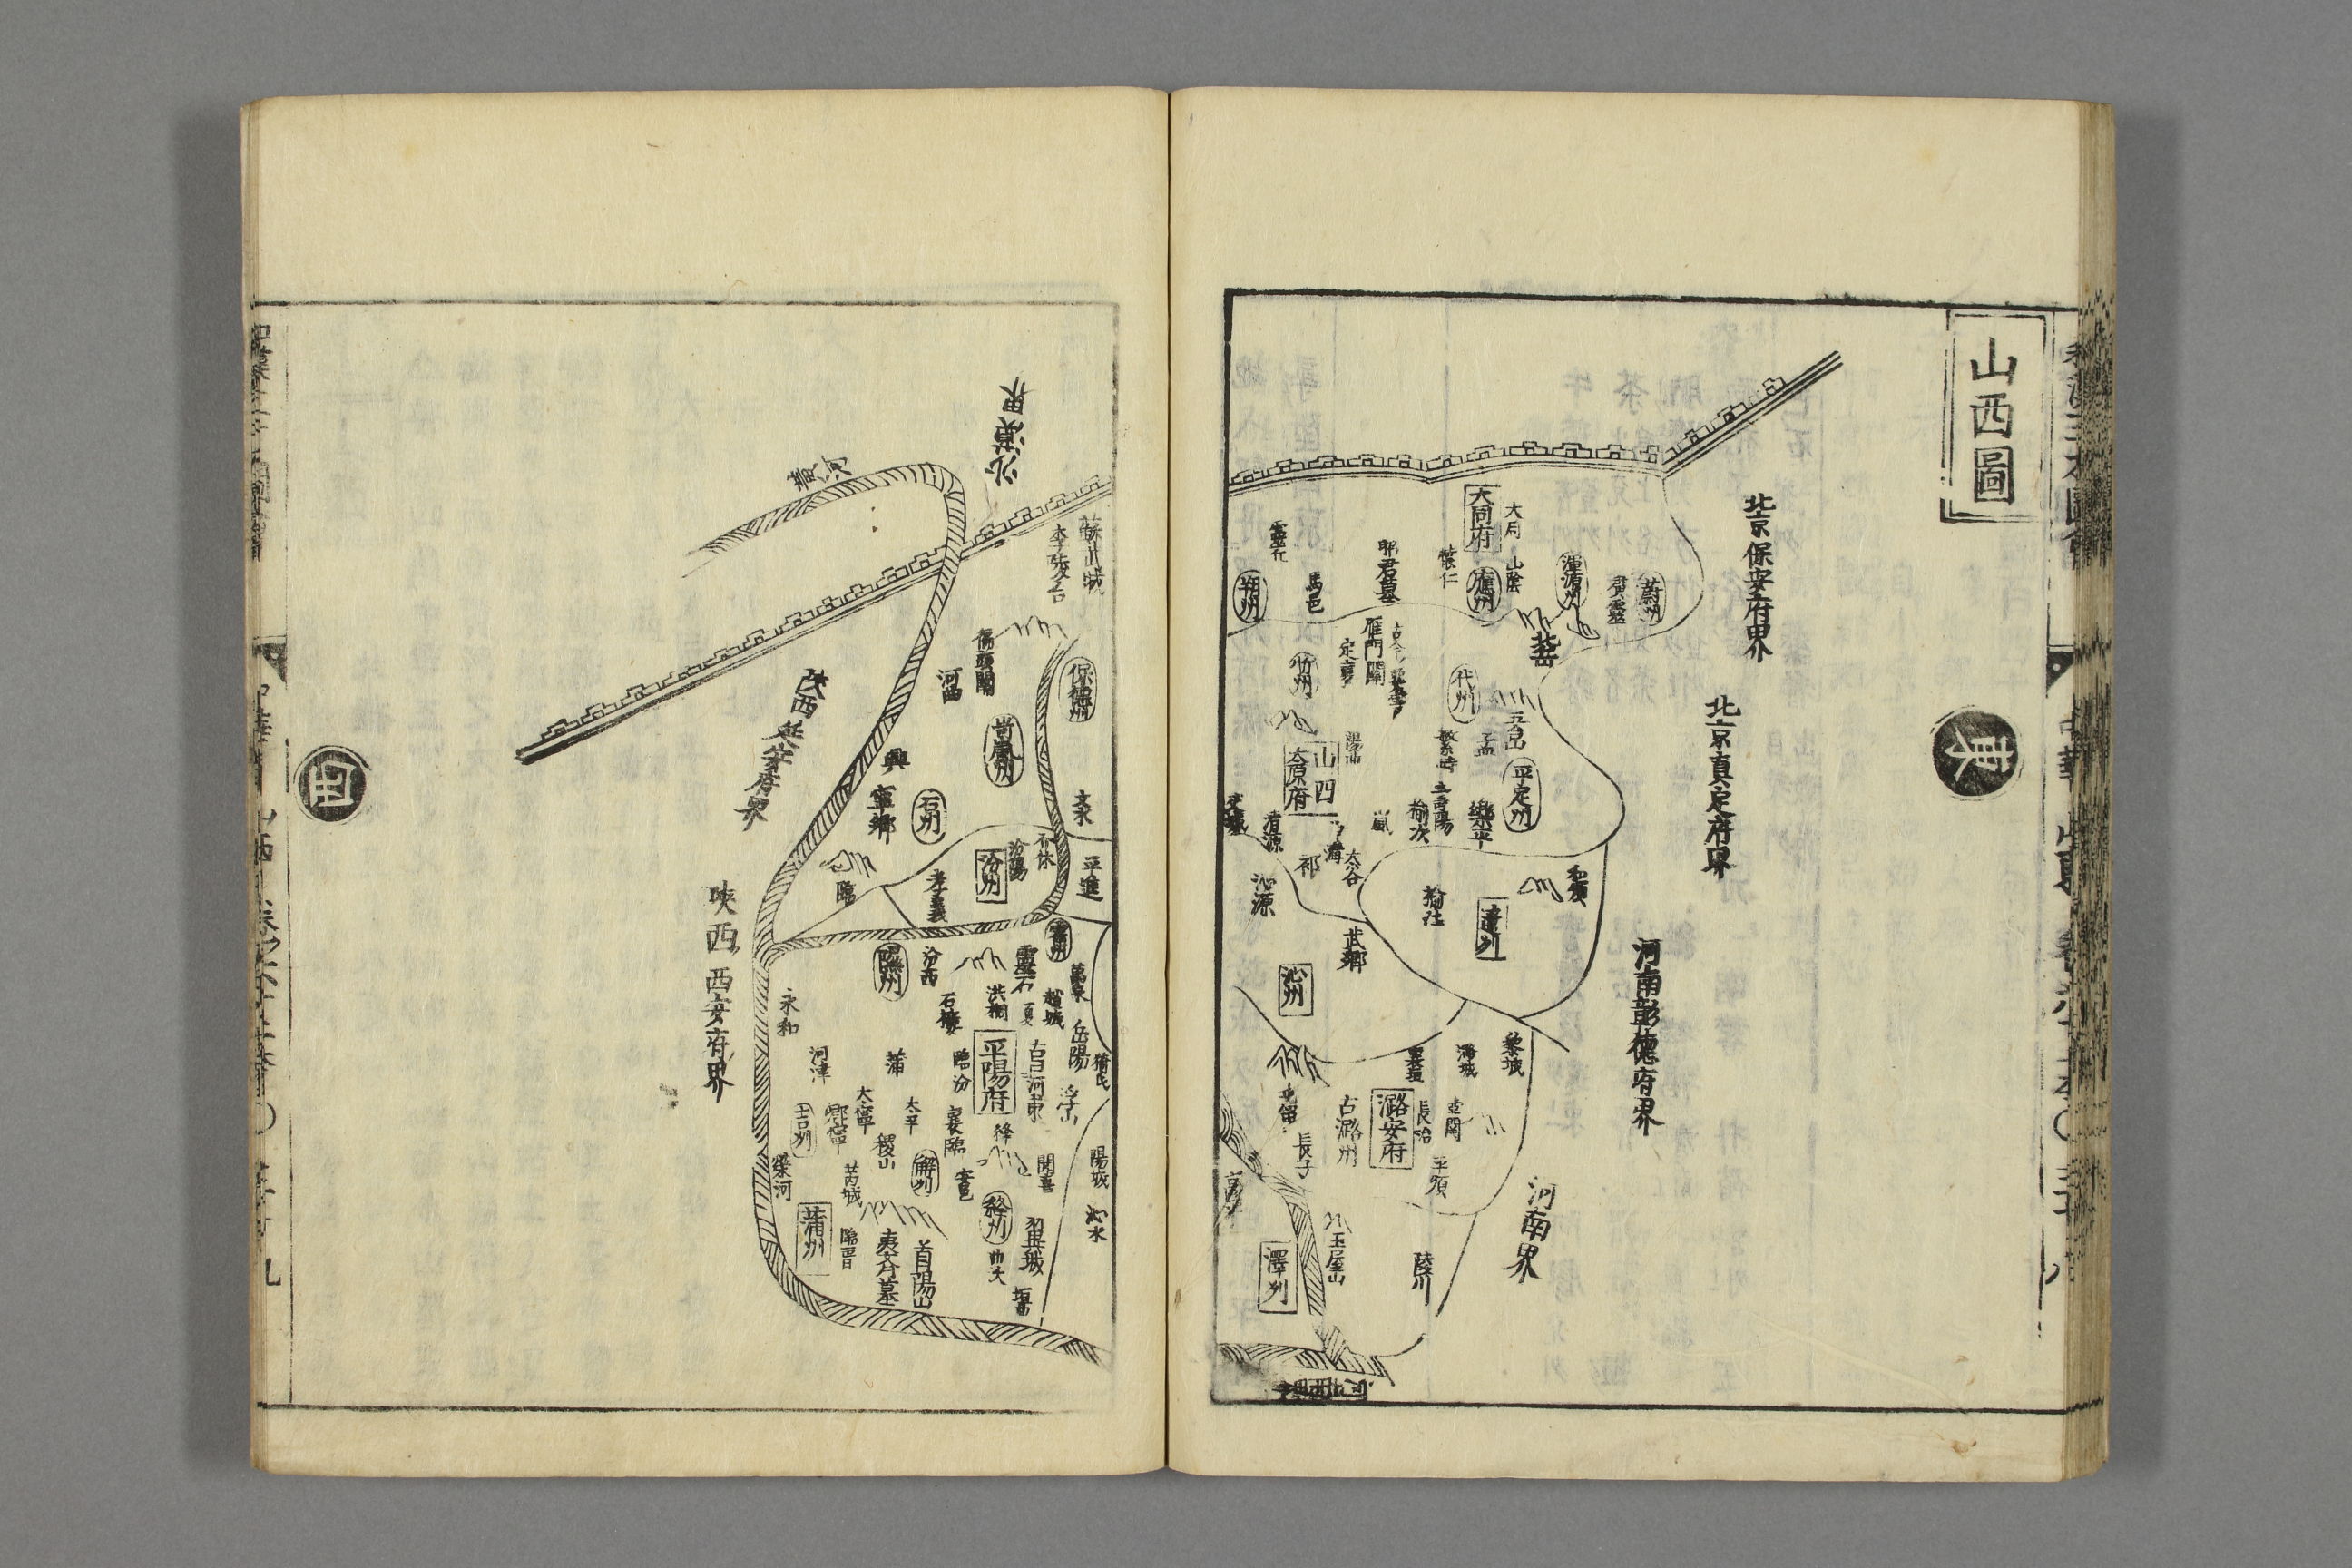 山西圖
東
北京保安府界
北京真定府界
河南彰德府界
河南界
大同府
大同
山陰
懷仁
應州
渾源州
廣靈
蔚州
北岳
昭君墓
馬邑
朔州
雁門關
定襄
忻州
代州
五臺山
繁峙
盂
平定州
樂平
壽陽
榆次
山西
太原府
陽曲
嵐
清源
文城
祁
太谷
沁源
榆社
遼州
和順
武鄉
沁州
黎城
潞城
襄垣
屯留
長子
古潞州
潞安府
長治
壺關
平順
玉屋山
澤州
陵川
沙漠界
黃河
蘇武城
李陵臺
偏頭關
河曲
保德州
岢嵐州
興
寧鄉
石州
文水
臨
孝義
汾州
汾陽
介休
平進
霍州
隰州
汾西
靈石
洪桐
石樓
夏
趙城
萬泉
岳陽
猗氏
永和
河津
蒲
臨汾
平陽府
古河東
浮山
吉州
鄉寧
大寧
太平
稷山
襄陵
絳
聞喜
陽城
榮河
芮城
解州
安邑
絳州
沁水
蒲州
臨晉
夷齊墓
首陽山
翼城
垣曲
陝西延安府界
陝西西安府界
西